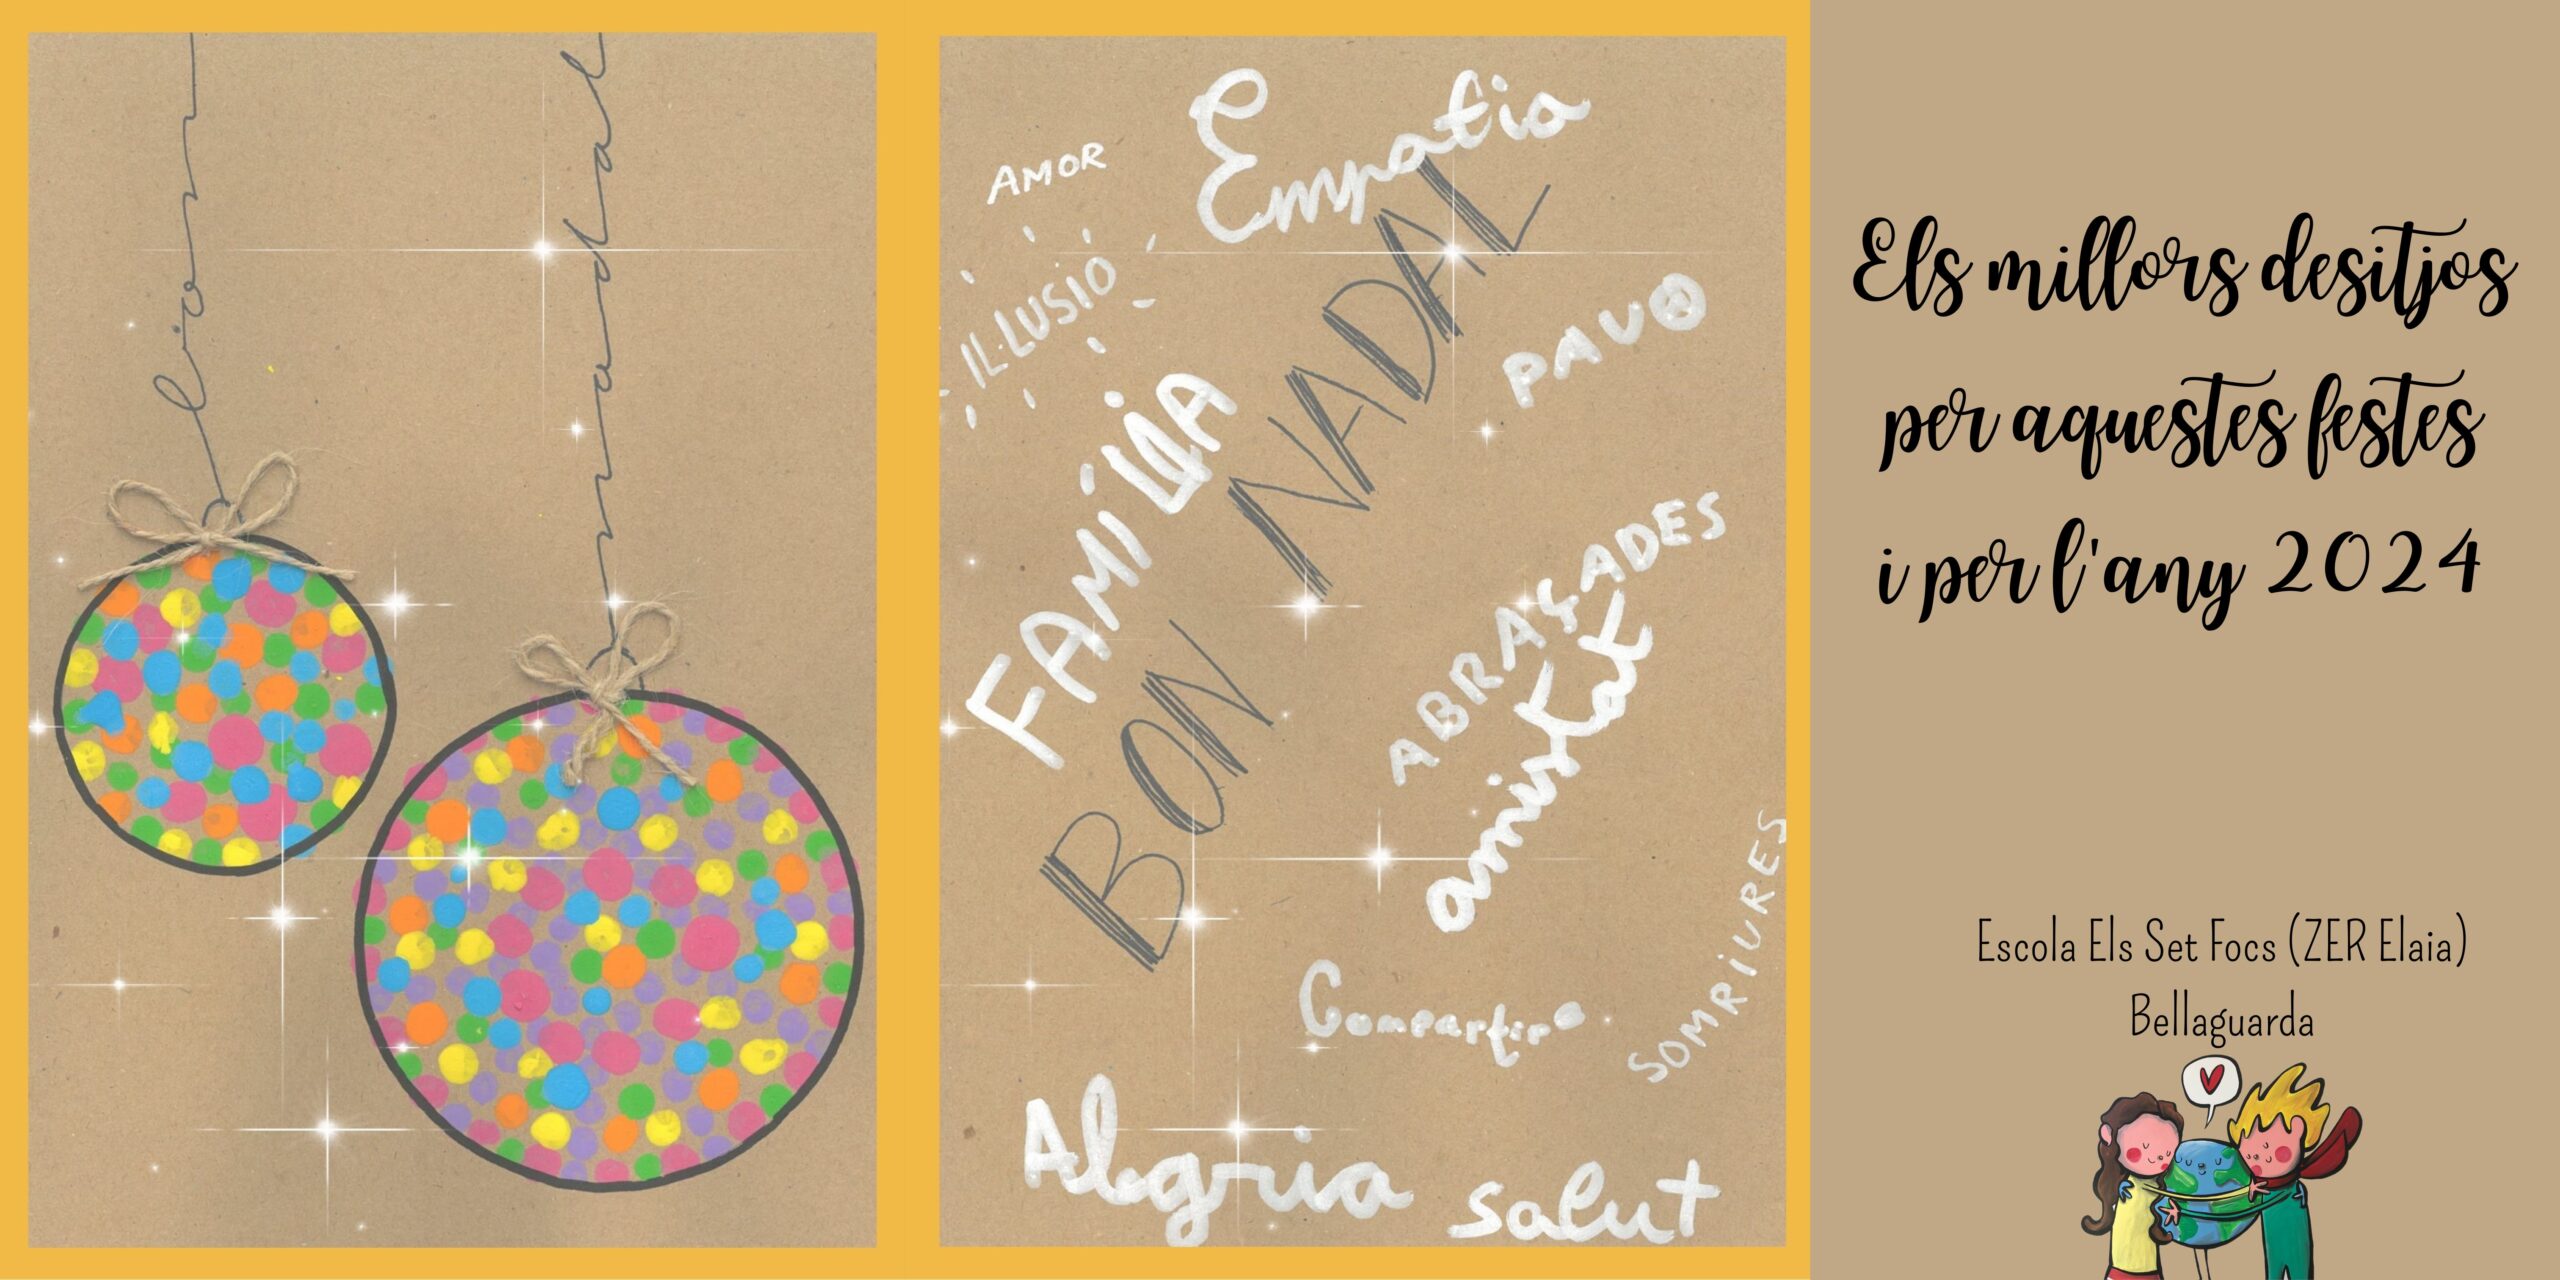 bon
nadal
Empatia
AMOR
IL·LUSIÓ
BON NADAL
PAU
FAMÍLIA
ABRAÇADES
amistat
SOMRIURES
Compartir
Alegria
salut
Els millors desitjos
per aquestes festes
i per l'any 2024
Escola Els Set Focs (ZER Elaia)
Bellaguarda